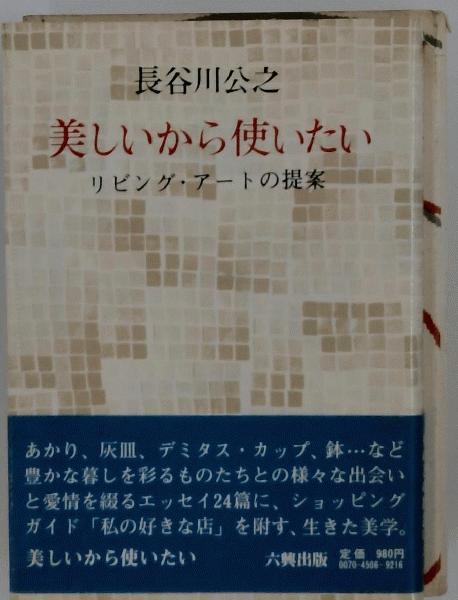 長谷川公之
美しいから使いたい
リビング・アートの提案
あかり、灰皿、デミタス・カップ、鉢…など
豊かな暮しを彩るものたちとの様々な出会い
と愛情を綴るエッセイ24篇に、ショッピング
ガイド「私の好きな店」を附す、生きた美学。
美しいから使いたい 六興出版 定価 980円
0070-4506-9216